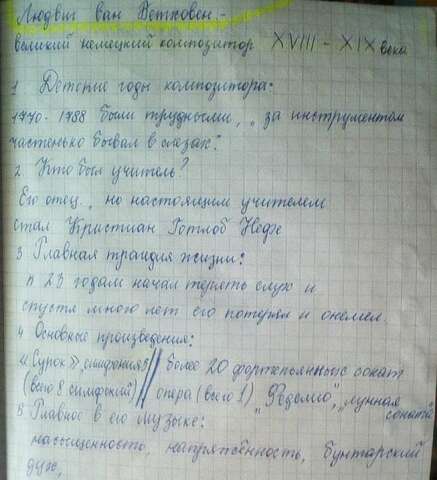 Людвиг ван Бетховен -
великий немецкий композитор XVIII - XIX века
1 Детские годы композитора:
1770 - 1788 были трудными, "за инструментом
частенько бывал в слезах".
2 Кто был учитель?
Его отец, но настоящим учителем
стал Кристиан Готлоб Нефе
3 Главная трагдия жизни:
к 23 годам начал терять слух и
спустя много лет его потерял и онемел.
4 Основные произведения:
"Сурок", симфония 5 // более 20 фортепьянных сонат
(всего 8 симфоний) // опера (всего 1) "Феделио", "лунная соната
5 Главное в его музыке:
насыщенность, напряжённость, бунтарский
дух,